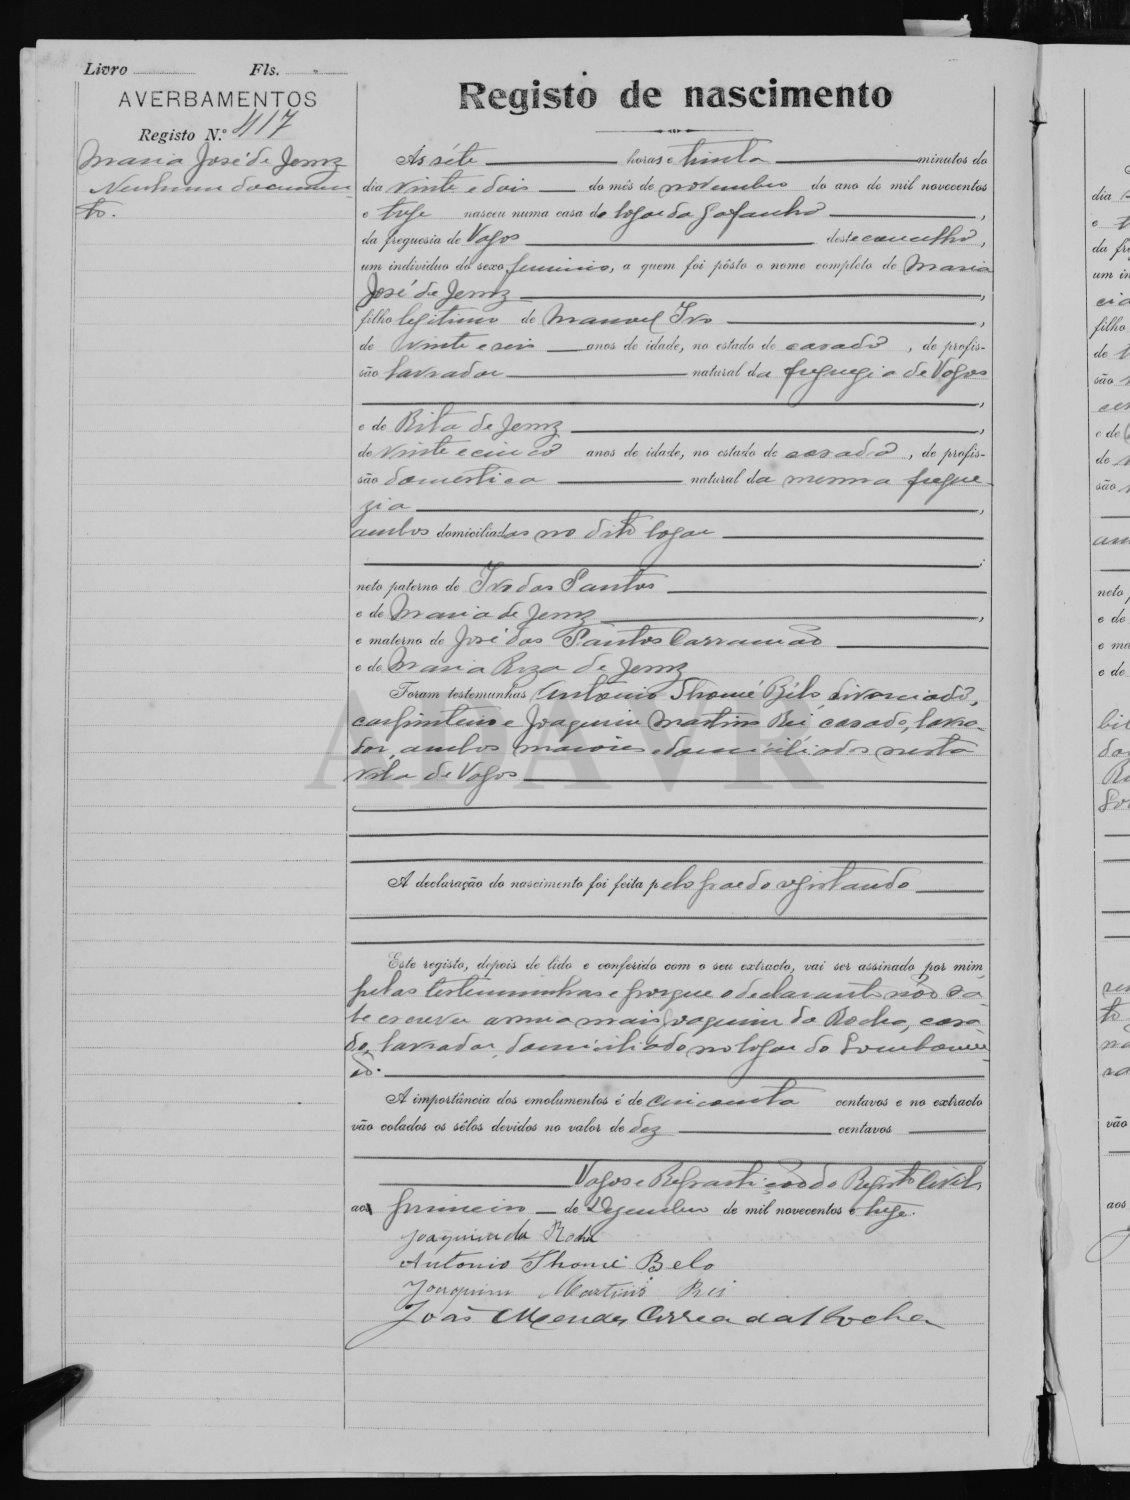 Livro Fls.
AVERBAMENTOS
Registo N.º 417
Maria José de Jesus
Nenhum documen-
to.
Registo de nascimento
Ás séte horas e trinta minutos do
dia vinte e dois do mês de novembro do ano de mil novecentos
e treze nasceu numa casa do logar da Gafanha,
da freguesia de Vagos deste concelho,
um individuo do sexo feminino, a quem foi pôsto o nome completo de Maria
José de Jesus,
filho legitimo de Manoel Ivo,
de vinte e seis anos de idade, no estado de casado, de profis-
são lavrador natural da freguezia de Vagos
,
e de Rita de Jesus,
de vinte e cinco anos de idade, no estado de casada, de profis-
são domestica natural da mesma fregue-
zia,
ambos domiciliados no dito logar
;
neto paterno de Ivo dos Santos
e de Maria de Jesus,
e materno de José dos Santos Carramão
e de Maria Roza de Jesus
Foram testemunhas Antonio Thomé Bélo, divorciado,
carpinteiro e Joaquim Martins Rei, casado, lavra-
dor, ambos maiores e domiciliados nesta
vila de Vagos
ADAVR
A declaração do nascimento foi feita pelo pae do registando
Este registo, depois de lido e conferido com o seu extracto, vai ser assinado por mim,
pelas testemunhas e porque o declarante não sa-
be escrever assina mais Joaquim da Rocha, casa-
do, lavrador, domiciliado no logar do Lombomei-
ão.
A importância dos emolumentos é de cincoenta centavos e no extracto
vão colados os sêlos devidos no valor de dez centavos
Vagos e Repartição do Registo Civil,
aos primeiro de Dezembro de mil novecentos e treze.
Joaquim da Rocha
Antonio Thomé Belo
Joaquim Martins Rei
João Mendes Correa da Rocha